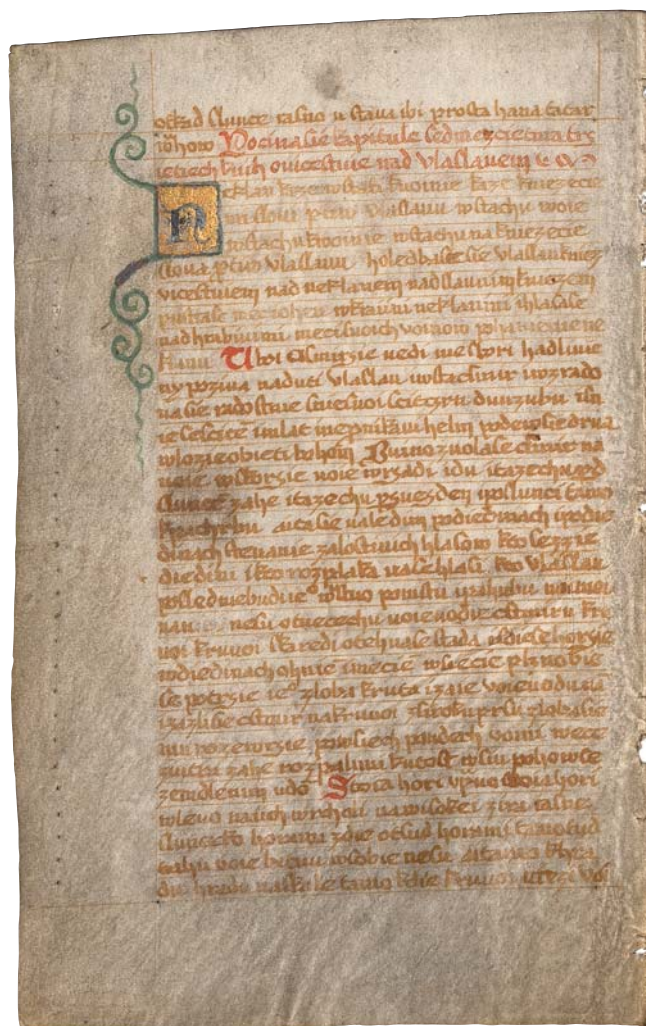 otkad slunce iasno u staua ibi prosta hana tatar
iohow Pocinasie kapitule sedmezcietma trz
ietiech knih o uicestuie nad Vlaslauem
Neklan kaze wstati kuoinie kaze kniezecie
mi slovi protiw Vlaslauu wstachu uoie
wstachu kuoinie wstachu na kniezecie
sloua protiw Vlaslauu holedbasesie Vlaslau kniez
uicestuiem nad neklanem nad slaunim kniezem
pustase mec i ohen w kraini neklanini i hlasase
nad hrabiuimi meci suoich uoinow pohanienie ne
klanu Uboi Csmirzie uedi me sbori hadliuie
ny poziua naduti Vlaslau i wsta csmir i wozrado
ua sie radostnie snie suoi scit czrn dwu zubu i sn
ie se scitem i mlat i nepronikaui helm podewsie drua
wlozie obieti bohom Buino zuolase csmir na
uoie wskorsie uoie w rzadi idu i tazechu przed
slunce zahe i tazechu pres ues den i po slunci tamo
k pachrbu aita sie uale dim po diedinach i po die
dinach stenanie zalostiuich hlasow kto sezze
diedini i kto rozplaka uase hlasi kto Vlaslau
posled nebudi ieo wstuo pomstu i zahubu
nan nesu otuecechu uoieuodie csmiru kru
uoi kruuoi skaredi otehna se stada i dieie horsie
w diedinach ohnie i mecie wsiecie plzno bie
se potrzie ieo zloba kruta i zaie uoieuodu na
i zazlise csmir na kruuoi z siroku prsu zlobasie
mu rozewrzie po wsiech po udech uoini wece
zuitra zahe rozpalimi krutost wsiu pohowte
zemdlenim udom Stoia hori wprauo stoia hori
wleuo na iich wrchou na wisokei ziri iasne
sluneczko horami zdie otsud horami tamotud
tahu uoie bitwu w sobie nesu aitamo k hra
du hradu na skale tamo kdie kruuoi